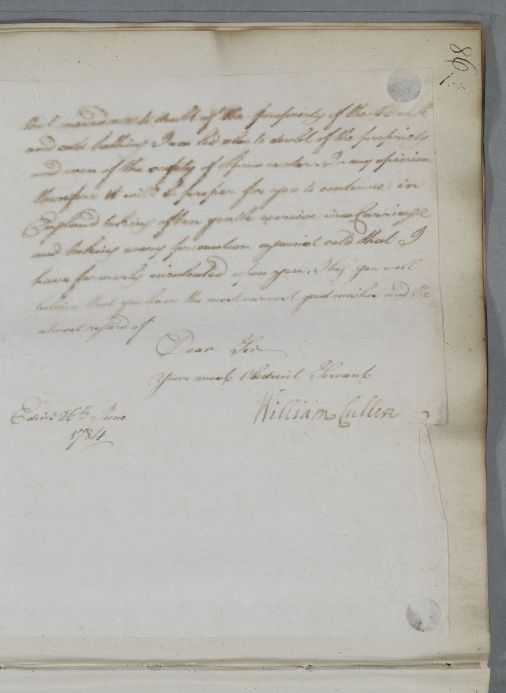 86
that made me to doubt of the propriety of the
and cold bathing I am led also to doubt of the propriety
and even of the safety of Spaw water. In my opinion
therefore it will be proper for you to continue in
England taking often gentle exercise in a Carriage
and taking every precaution against cold that I
have formerly inculcated upon you. I beg you will
believe that you have the most earnest good wishes and the
utmost regard of
Dear Sir
Your most Obedient Servant
Edinr. 26th June William Cullen
1784